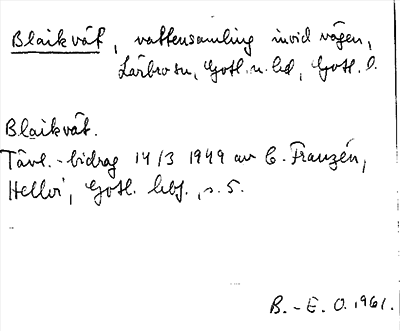 Blaikvät, vattensamling invid vägen,
Lärbro sn, Gotl. n. hd, Gotl. l.
Blaikvät.
Tävl.-bidrag 14/3 1949 av C. Franzén,
Hellvi, Gotl. hbf., s. 5.
B.-E. O. 1961.